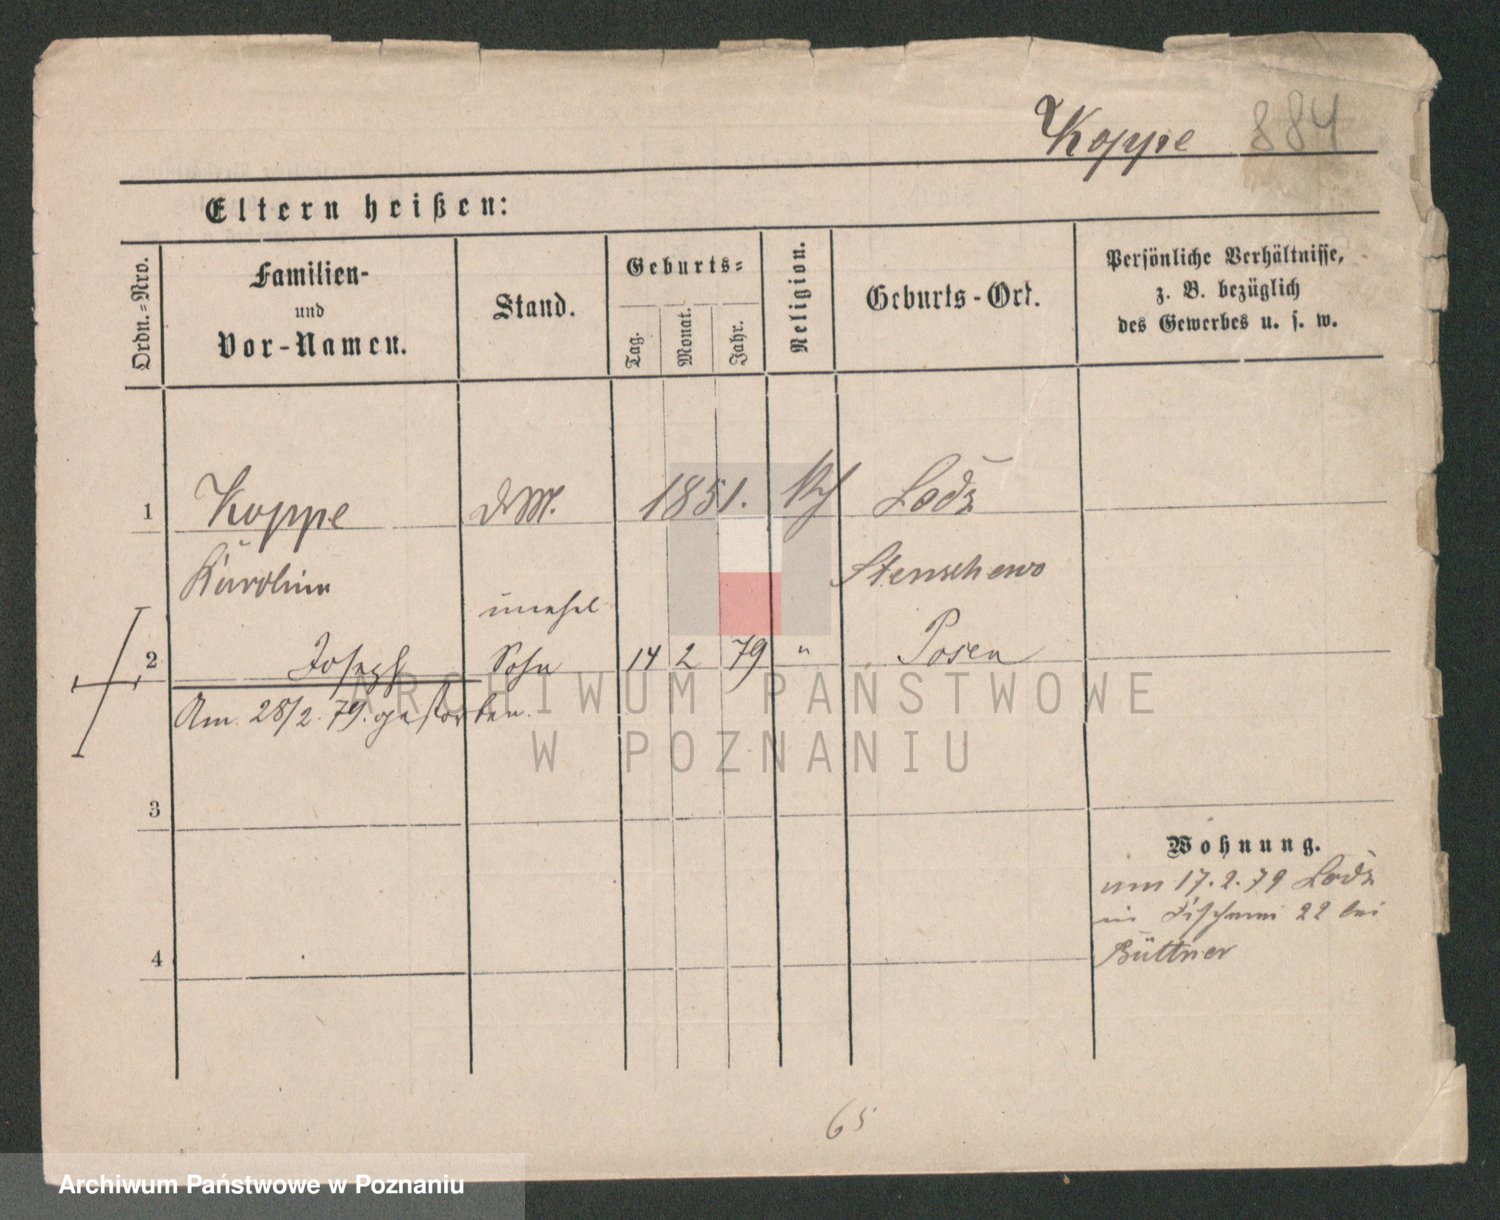 Koppe 884
Eltern heißen:
Ordn.-Nro.
Familien-
und
Vor-Namen.
Stand.
Geburts-
Tag.
Monat.
Jahr.
Religion.
Geburts-Ort.
Persönliche Verhältnisse,
z. B. bezüglich
des Gewerbes u. s. w.
1 Koppe 1851. Lodz
Karolina Stenschewo
unehel
2 Joseph Sohn 14 2 79 " Posen
Am 28/2. 79. gestorben.
ARCHIWUM PAŃSTWOWE
W POZNANIU
3
Wohnung.
17.2.79 Lodz
22 bei
4 Büttner
65
Archiwum Państwowe w Poznaniu